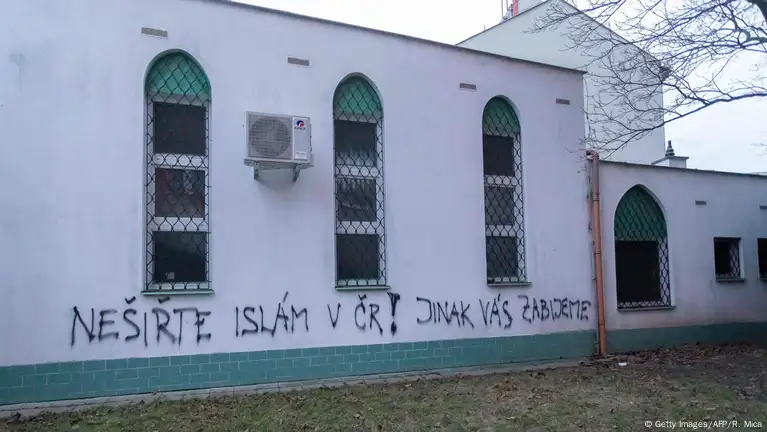 NEŠIŘTE ISLÁM V ČR! JINAK VÁS ZABIJEME
© Getty Images/AFP/R. Mica